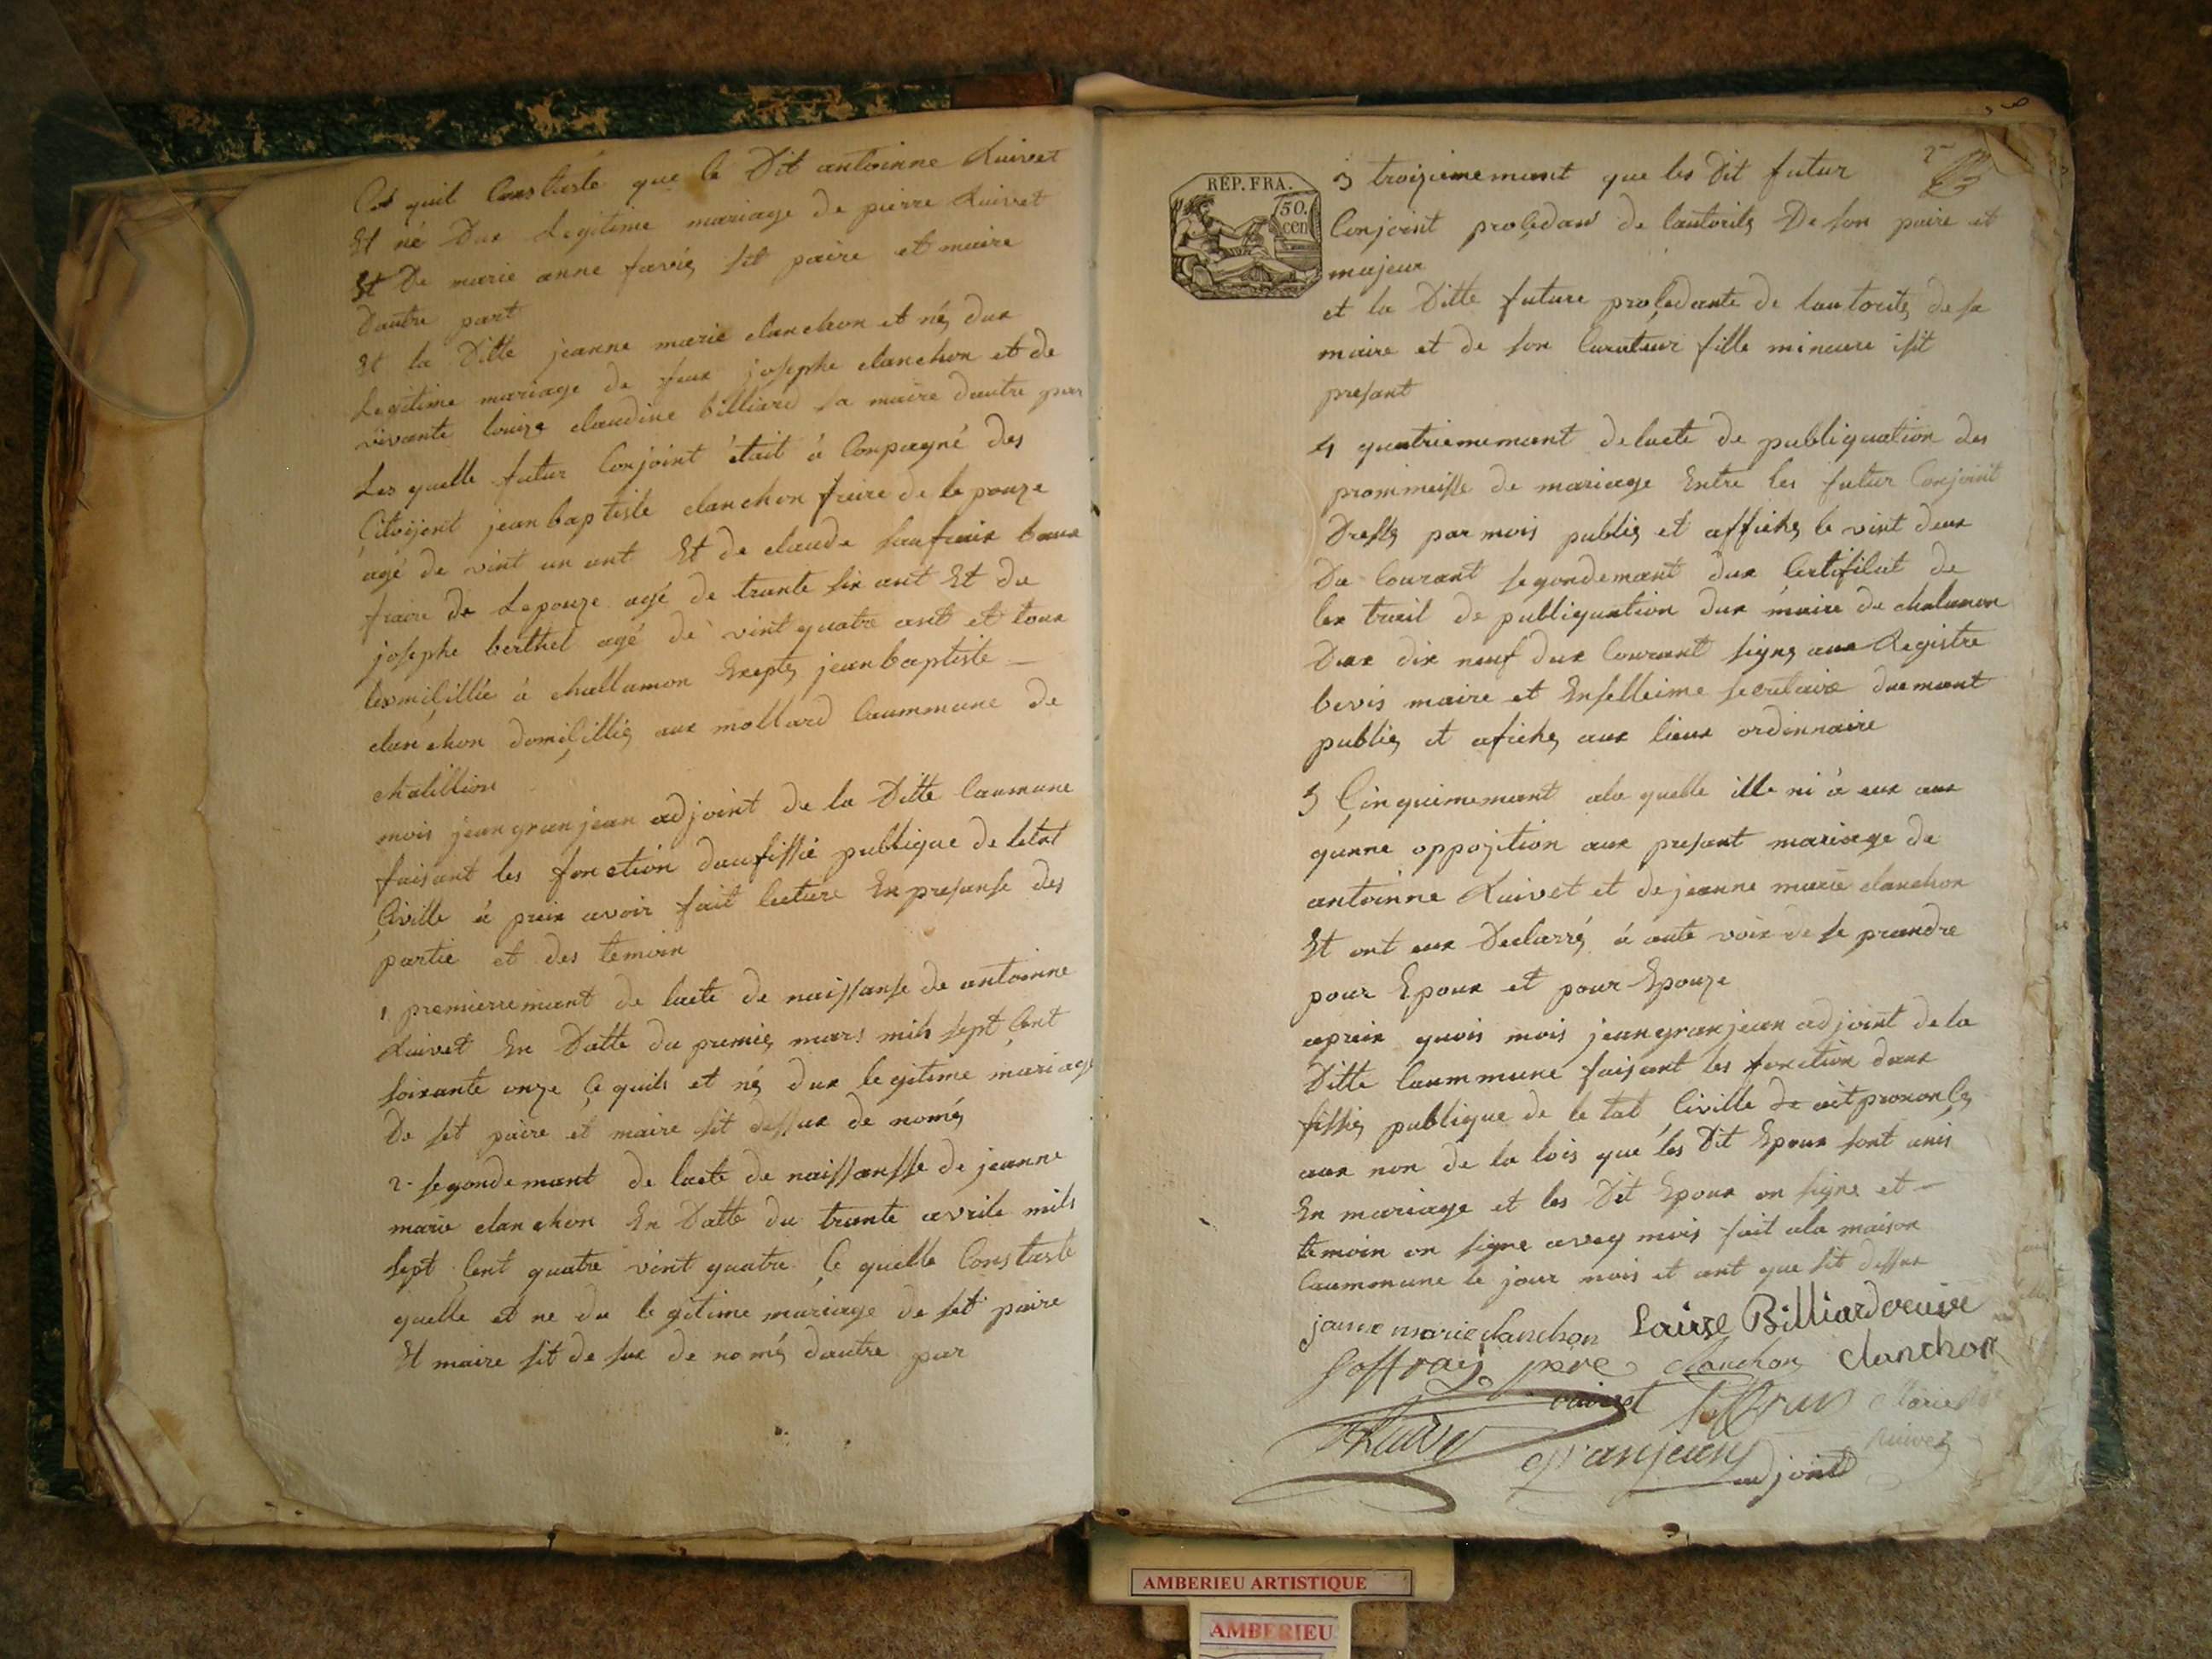 quil Constaste que le Dit antoinne Ruivet
Et né Dux Legitime mariage de pierre Ruivet
Et De marie anne favié sit paire et maire
Dautre part
Et la Ditte jeanne marie clanchon et né dux
Legitime mariage de feux josephe clanchon et de
vivante louize claudine billiard sa maire dautre par
Les quelle futur Conjoint était à Conpagné des
Çitoÿent jean baptiste clanchon fraire de le pouze
agé de vint un ant Et de claude baux
fraire de Lepouze agé de trante six ant Et de
josephe berthet agé de vint quatre ant et toux
à challamon Exepté jean baptiste
clanchon domiçillié aux mollard Caummune de
chatillion
mois jean granjean adjoint de la Ditte Caumune
faisant les fonction daufissié publique de letat
Çiville à preix avoir fait lecture En presanse des
partie et des temoin
1 premierremant de lacte de naissanse de antoinne
Ruivet En Datte du premié mars mils sept Çent
soixante onze Ce quils et né dux legitime mariage
De sit paire et maire sit dessux de nomé
2 segondemant de lacte de naissansse de jeanne
marie clanchon En Datte du trante avrile mils
sept Çent quatre vint quatre Çe quelle Constaste
quelle et ne du legitime mariage de sit paire
Et maire sit de sux de nomé dautre par
RÉP. FRA.
50.
cen
3 troiziememant que les Dit futur
Conjoint proçedant de lautorité De son paire et
majeur
et la Ditte future proçedante de lautorité de sa
maire et de son Curateur fille mineure isit
presant
4 quatriememant de lacte de publiquation des
prommaisse de mariage Entre les futur Conjoint
Dressé par mois publié et affiché le vint deux
Du Courant segondemant dux Certificat de
lex trait de publiquation dux maire de chalamon
Dux dix neuf dux Courant signé aux Registre
bevis maire et Enselleime secretaire duemant
publié et afiché aux lieux ordinnaire
5 Çinquiememant ala quelle ille ni à eux aux
qunne oppozition aux presant mariage de
antoinne Ruivet et de jeanne marie clanchon
Et ont eux Declarré à aute voix de se prandre
pour Epoux et pour Epouze
apreix quois mois jean granjean adjoint de la
Ditte Caummune faisant les fonction daux
fissié publique de le tat Çiville ait prononÇé
aux non de la lois que les Dit Epoux sont unis
En mariage et les Dit Epoux on signé et
temoin on signé aveq mois fait ala maison
Caummune le jour mois et ant que sit dessux
jeanne marie clanchon Louise Billiard veuve
joffray pere clanchon clanchon
ruivet joffray Marie
Ruivet granjean ruivet
adjoint
AMBERIEU ARTISTIQUE
AMBERIEU